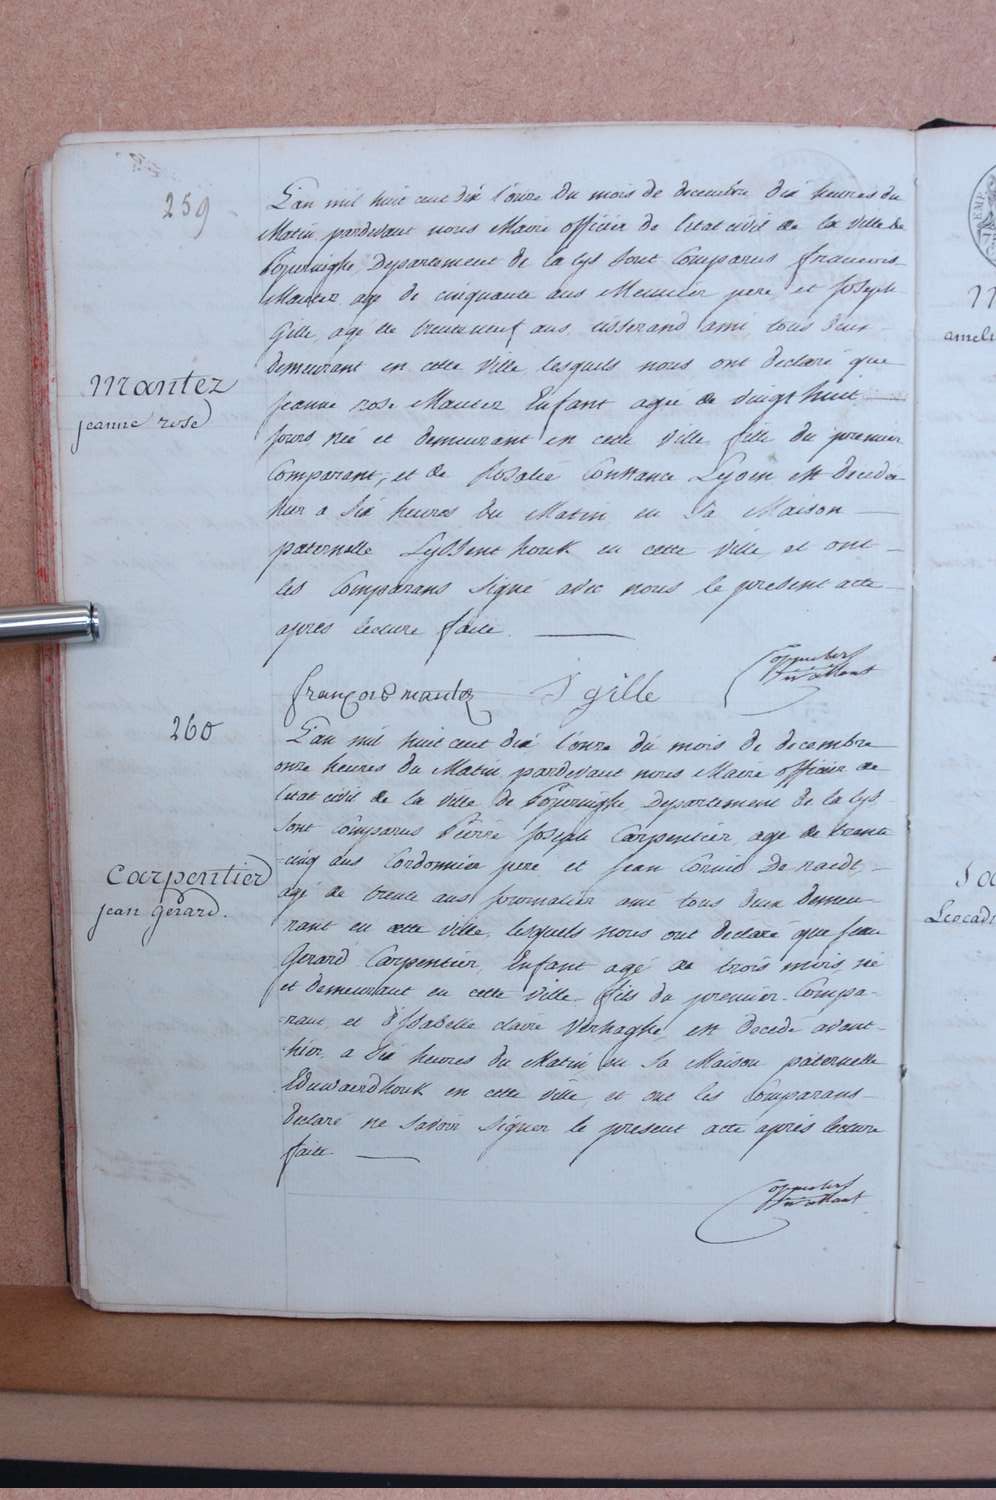 259
L'an mil huit cent dix l'onze du mois de decembre dix heures du
Matin pardevant nous Maire officier de l'etat civil de la ville de
Poperinghe, Departement de la Lys sont Comparus francois
Mantez agé de cinquante ans Meunier pere, et Joseph
Gille, agé de trenteneuf ans, tisserand ami tous deux
demeurant en cette Ville lesquels nous ont declaré que
Mantez
jeanne rose
jeanne rose Mantez Enfant agée de vingt huit
jours, née et demeurant en cette Ville fille du premier
Comparant, et de Rosalie Constance Lyoen est decedée
hier a six heures du Matin en sa Maison
paternelle Lyssenthouk en cette ville et ont
les Comparans signé avec nous le present acte
après lecture faite.
françois mantez J gille
260
L'an mil huit cent dix l'onze du mois de decembre
onze heures du Matin pardevant nous Maire officier de
l'etat civil de la ville de Poperinghe Departement de la Lys
sont Comparus Pierre Joseph Carpentier, agé de trente
Carpentier
jean gerard.
cinq ans Cordonnier pere et Jean Denaedt,
agé de trente ans journalier ami tous deux demeu-
rant en cette ville, lesquels nous ont declaré que Jean
Gerard Carpentier, Enfant agé de trois mois, né
et demeurant en cette Ville fils du premier Compa-
-rant, et d'Isabelle claire Verhaghe, est decedé avant-
-hier, a six heures du Matin en sa Maison paternelle
Eduwaerdhouk en cette ville, et ont les Comparans
declaré ne savoir signer le present acte après lecture
faite
EMP
ameli
Leocad